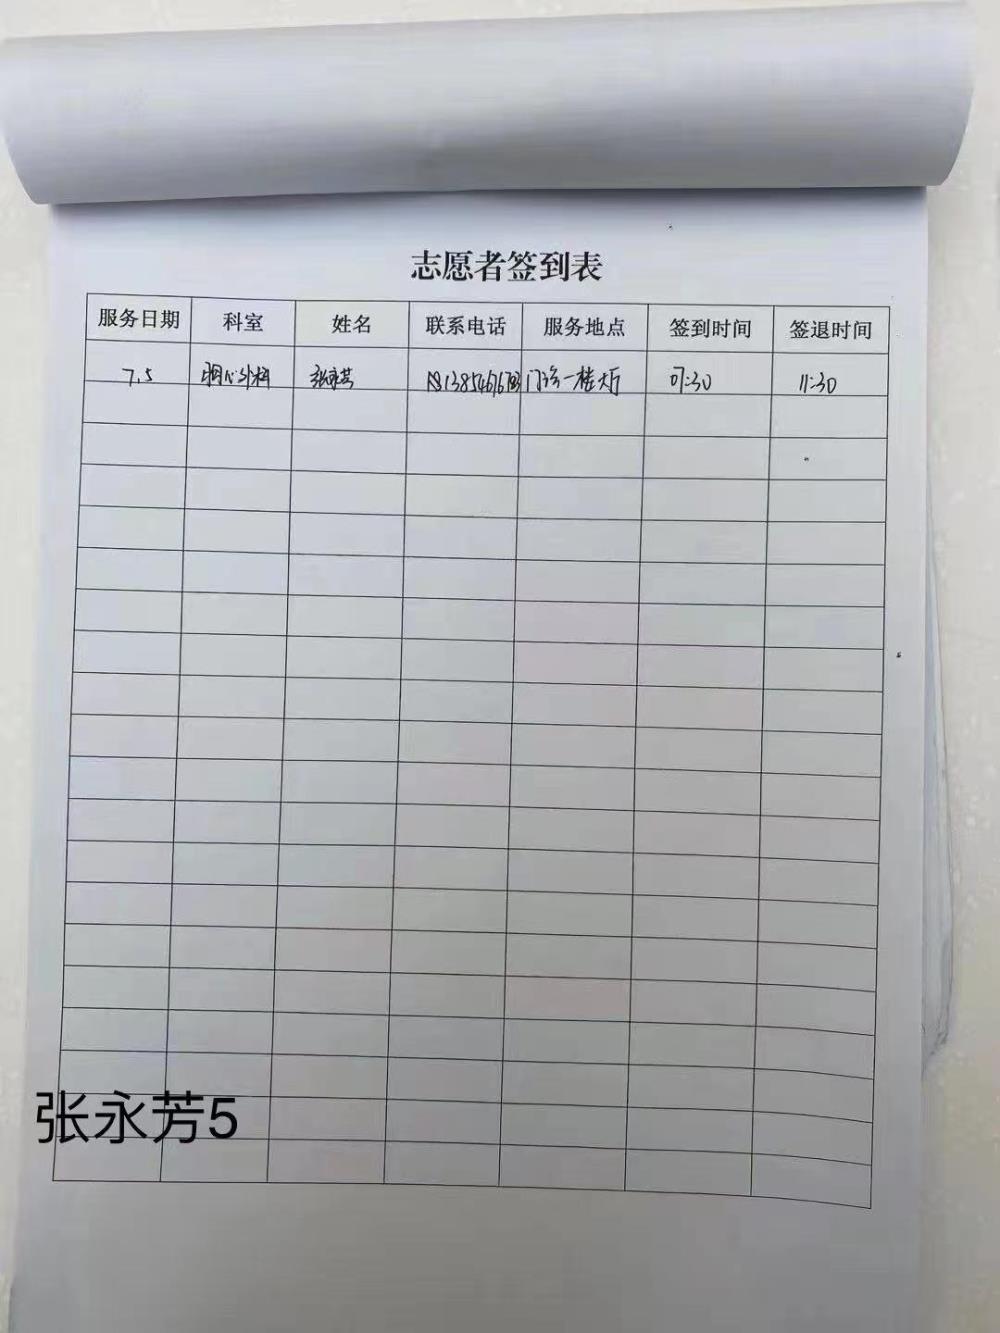 志愿者签到表
服务日期 科室 姓名 联系电话 服务地点 签到时间 签退时间
7.5 外科 张永芳 门诊一楼大厅 07:30 11:30
张永芳5